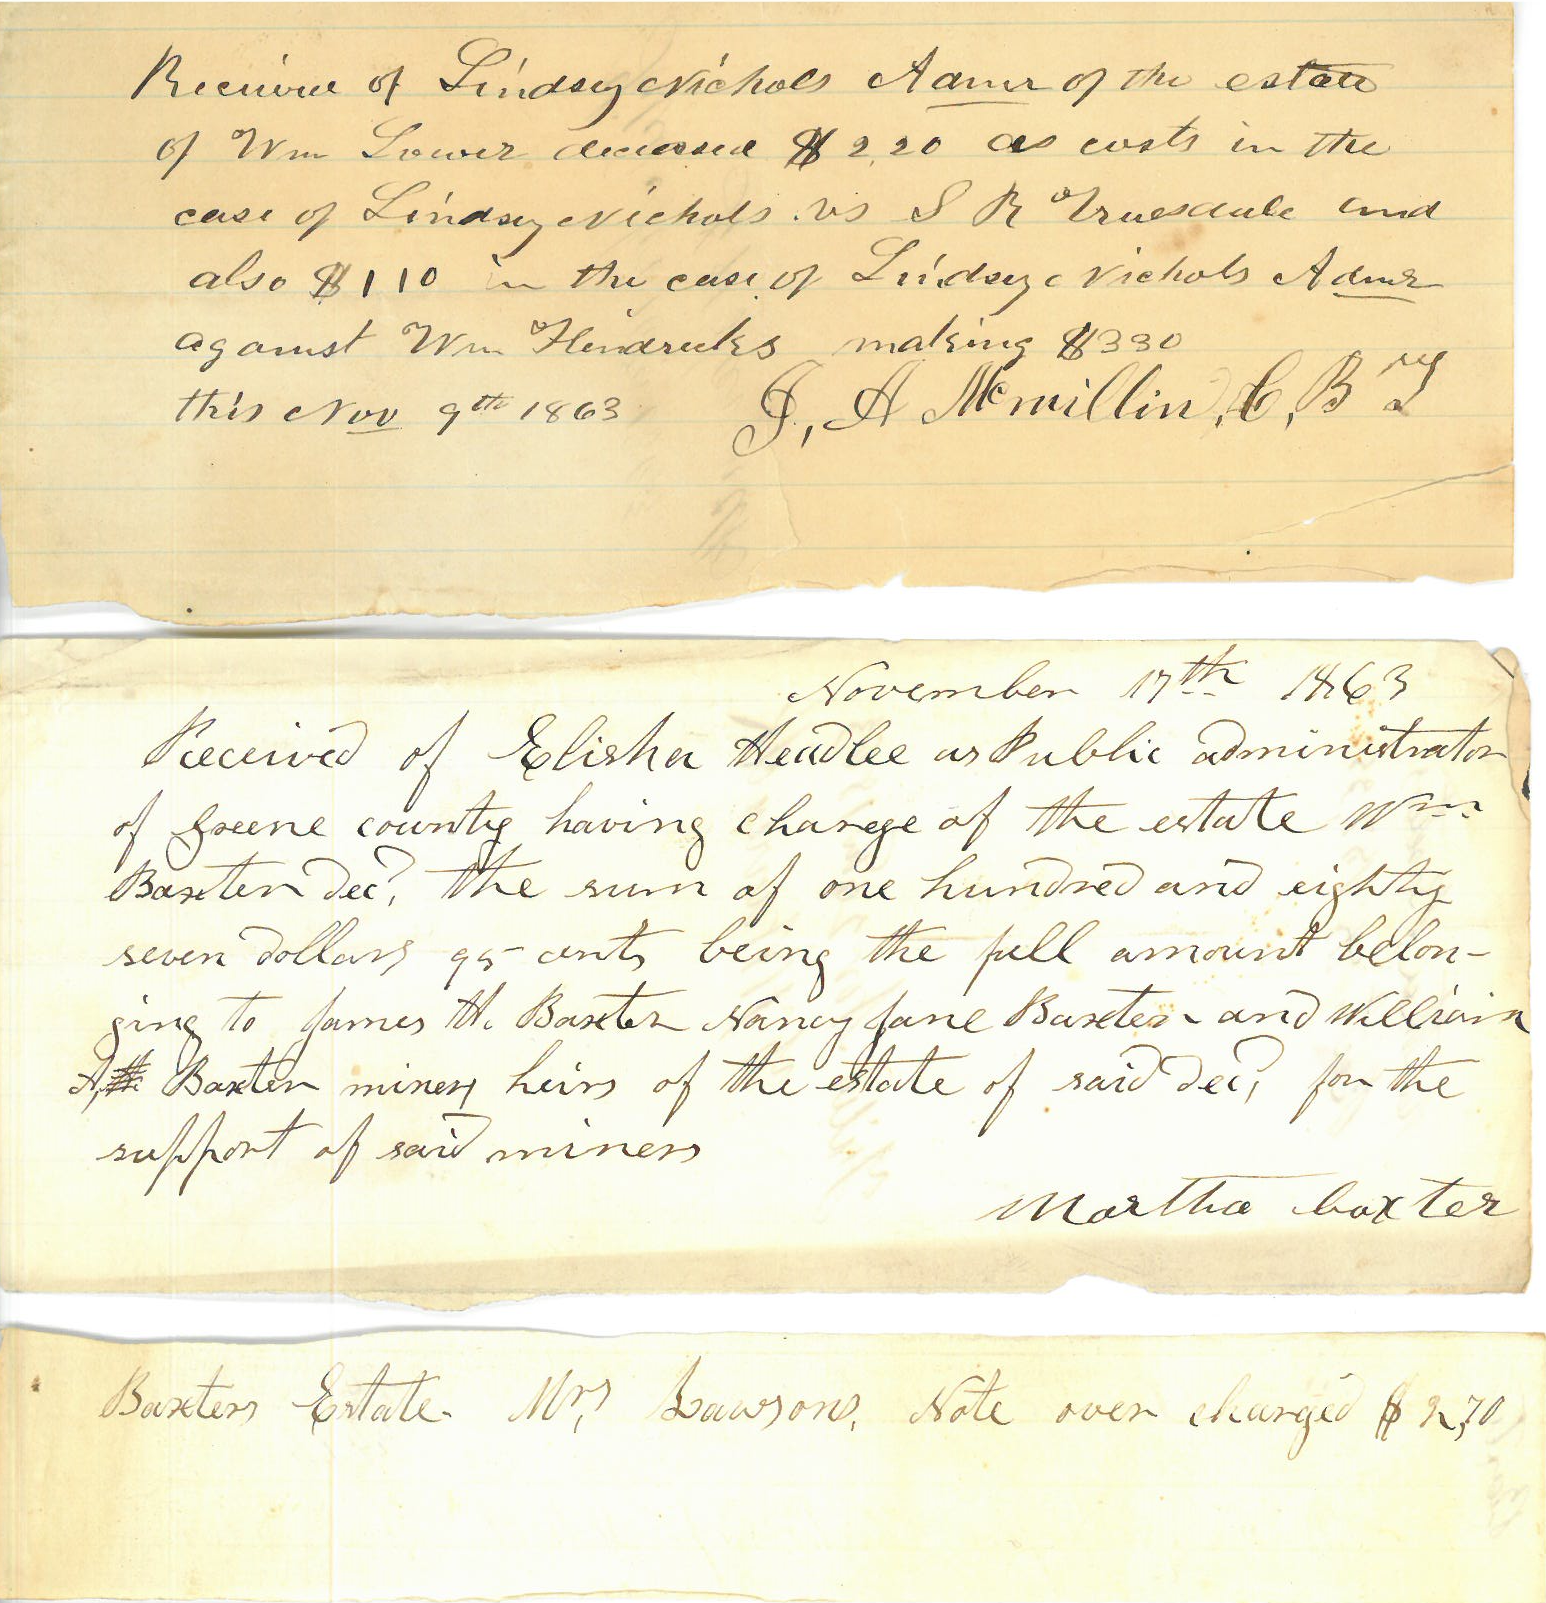 Recieived of Lindsey Nichols Admr of the estate
of Wm Lower deceased $2.20 as costs in the
case of Lindsey Nichols vs S R Truesdale and
also $1 10 in the case of Lindsey Nichols Admr
against Wm Hendricks making $3 30
this Nov 9th 1863 J, A Mcmillin, C,
November 17th 1863
Received of Elisha Headlee as Public administrator
of Greene county having charge of the estate Wm
Baxter Decd, the sum of one hundred and eighty
seven dollars 95 cents being the full amount belon-
ging to James H. Baxter Nancy Jane Baxter and William
A, Baxter miners heirs of the estate of said Decd, for the
support of said miners
Martha baxter
Baxters Estate. Mrs, Lawsons, Note over charged $2,70